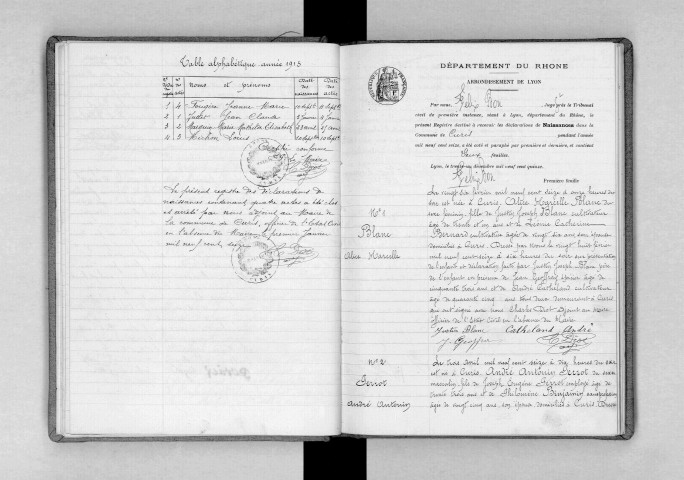 Table alphabétique année 1915
Noms et prénoms
1 4 Fougère Jeanne Marie
2 1 Jean Claude
3 2 Marie Mathilde Elisabeth
4 3 Louis
Certifié conforme
Le présent registre des déclarations de
naissances contenant quatre actes a été clos
et arrêté par nous adjoint au Maire de
la commune de Curis, officier de l'état civil
en l'absence du Maire, le premier Janvier
mil neuf cent seize
DÉPARTEMENT DU RHONE
ARRONDISSEMENT DE LYON
Par nous, Juge près le Tribunal
civil de première instance, séant à Lyon, département du Rhône, le
présent Registre destiné à recevoir les déclarations de Naissances dans la
Commune de Curis pendant l'année
mil neuf cent seize, a été coté et paraphé par première et dernière, et contient
feuilles.
Lyon, le trente décembre mil neuf cent quinze.
Première feuille
N° 1
Blanc
Alice Marcelle
Le vingt six février mil neuf cent seize à onze heures du
soir est née à Curis, Alice Blanc du
sexe féminin, fille de Justin Joseph Blanc cultivateur
âgé de trente et un ans et de Léonie Catherine
Bernard cultivatrice âgée de vingt six ans son épouse
domiciliés à Curis. Dressé par nous le vingt huit février
mil neuf cent seize à dix heures du soir sur présentation
de l'enfant et déclaration faite par Justin Joseph Blanc père
de l'enfant en présence de Jean Geoffray âgé de
cinquante trois ans et de André Catheland cultivateur
âgé de quarante cinq ans tous deux demeurant à Curis
qui ont signé avec nous Charles adjoint au Maire
officier de l'état civil en l'absence du Maire.
Justin Blanc Catheland André
J. Geoffray
N° 2
Perrot
André Antonin
Le trois avril mil neuf cent seize à dix heures du soir
est né à Curis, André Antonin Perrot du sexe
masculin, fils de Joseph Eugène Perrot employé âgé de
trente trois ans et de Philomène Benjamin
âgée de vingt cinq ans, son épouse domiciliés à Curis. Dressé